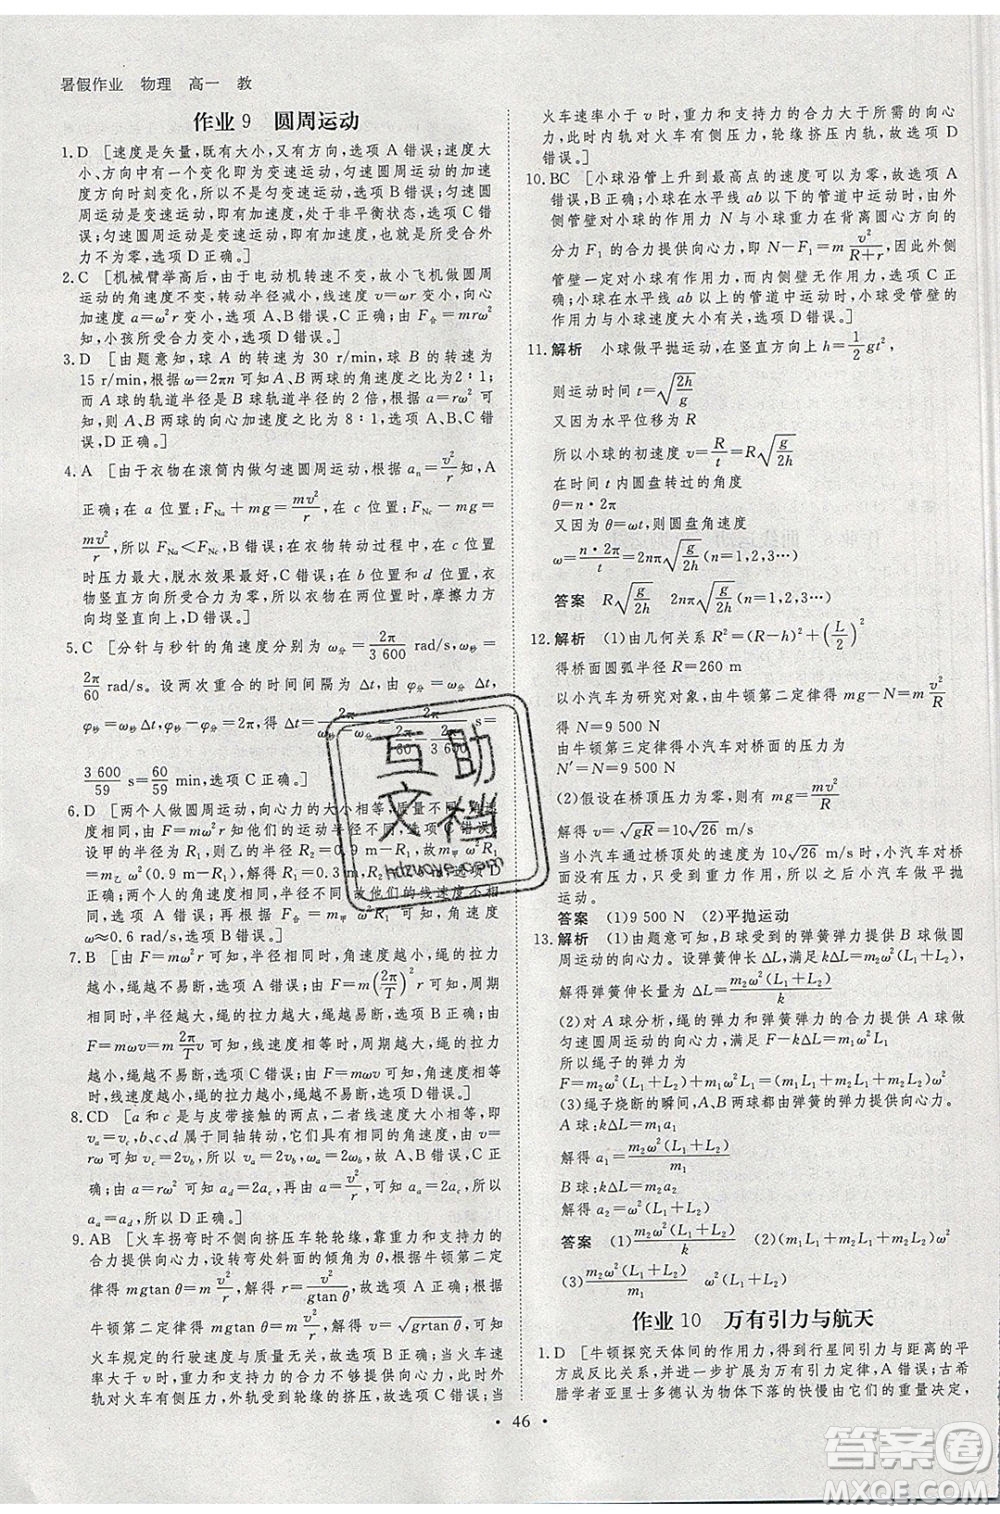 暑假作业 物理 高一 教
作业 9 圆周运动
1.D [速度是矢量,既有大小,又有方向,选项 A 错误;速度大
小、方向有一个变化即为变速运动,匀速圆周运动的速度
方向时刻变化,所以为变速运动,选项 B 错误;匀速圆周
运动是变速运动,有加速度,处于非平衡状态,选项 C 错
误;匀速圆周运动有加速度,由牛顿第二定律得,所受合外
力不为零,选项 D 正确。]
2.C [机械臂举高后,由于电动机转速不变,故小飞机做圆周
运动的角速度不变,转动半径减小,线速度 v=ωr 变小,向
心加速度 a=ω²r 变小,周期 T 不变;由 F合=ma=mrω²
知,小孩所受合力变小,选项 C 正确,A、B、D 错误。]
3.D [由题意知,球 A 的转速为 30 r/min,球 B 的转速为
15 r/min,根据 ω=2πn 可知 A、B 两球的角速度之比为 2∶1;
而 A 球的轨道半径为 B 球轨道半径的 2 倍,根据 a=rω² 可
知,A、B 两球的向心加速度之比为 8∶1,选项 A、B、C 错
误,D 正确。]
4.A [由于衣物在滚筒内做匀速圆周运动,根据 aₙ=v²/r 可知,A
正确;在 a 位置:F_Na+mg=mv²/r,在 c 位置:F_Nc-mg=
mv²/r,所以 F_Na<F_Nc,选项 B 错误;衣物转动过程中,在 c 位置
时压力最大,脱水效果最好,选项 C 错误;在 b 和 d 位置,衣
物竖直方向受重力和摩擦力,根据受力平衡得,摩擦力方
向均竖直向上,选项 D 错误。]
5.C [分针与秒针的角速度分别为 ω分=2π/3 600 rad/s,ω秒=
2π/60 rad/s。设两次重合的时间间隔为 Δt,由 φ分=ω分Δt,
φ秒=ω秒Δt,φ秒-φ分=2π,得 Δt=2π/(ω秒-ω分)=2π/(2π/60-2π/3 600) s=
3 600/59 s=60/59 min,选项 C 正确。]
6.D [两个人做圆周运动,向心力的大小相等,质量不同,角速
度相等,由 F=mω²r 知他们的运动半径不同,选项 C 错误;
设甲的半径为 R₁,则乙的半径为 R₂=0.9 m-R₁,故 m甲ω²R₁=
ω²(0.9 m-R₁),R₁=0.3 m,R₂=0.6 m,选项 D
正确;再根据 F合=m甲ω²R₁可得
ω≈0.6 rad/s,选项 A、B 错误。]
7.B [由 F=mω²r 可知,角速度相等,半径越小,绳的拉力
越小,绳越不易断,选项 A 错误;由 F=m(2π/T)²r 可知,周期
相等,半径越大,绳的拉力越大,绳越易断,选项 B 正确;由 F=
mv·2π/T 可知,v、T 相等,绳的拉力相等,又由 v=ωr 可知,线速度
相等,半径越大,角速度越小,由 F=mωv 可知,绳的拉力
越小,绳越不易断,选项 C 错误,D 错误。]
8.CD [a 和 c 是与皮带接触的两点,二者线速度大小相等,
即 vₐ=v_c,b、c、d 属于同轴转动,它们具有共同的角速度,由 v=
rω 可知 v_c=2v_b,所以 vₐ=2v_b,选项 A、B 错误;由 a=v²/r
可得 aₐ=2a_c,由 a=rω² 可知 a_d=2a_c,所以
aₐ=a_d,所以 C、D 正确。]
9.AB [火车拐弯时不侧向挤压车轮轮缘,靠重力和支持力的
合力提供向心力,设转弯处斜面的倾角为 θ,根据牛顿第二定
律得 mgtan θ=mv²/r,解得 r=v²/(gtan θ),故选项 A 正确;根据
牛顿第二定律得 mgtan θ=mv²/r,解得 v=√(grtan θ),可知
火车规定的行驶速度与质量无关,选项 B 正确;当火车速率
大于 v 时,重力和支持力的合力不能够提供向心力,此时外
轨对火车有侧压力,外轨受到轮缘的挤压,故选项 C 错误;当
火车速率小于 v 时,重力和支持力的合力大于所需的向心
力,此时内轨对火车有侧压力,轮缘挤压内轨,故选项 D
错误。]
10.BC [小球沿管上升到最高点的速度可以为零,故选项 A
错误,B 正确;小球在水平线 ab 以下的管道中运动时,由外
侧管壁对小球的作用力 N 与小球重力在背离圆心方向的
分力 F₁ 的合力提供向心力,即 N-F₁=m v²/(R+r),因此,外侧
管壁一定对小球有作用力,而内侧壁无作用力,选项 C 正确;
小球在水平线 ab 以上的管道中运动时,小球受管壁的
作用力与小球速度大小有关,选项 D 错误。]
11.解析 小球做平抛运动,在竖直方向上 h=½gt²,
则运动时间 t=√(2h/g)
又因为水平位移为 R
所以小球的初速度 v=R/t=R√(g/2h)
在时间 t 内圆盘转过的角度
θ=n·2π
又因为 θ=ωt,则圆盘角速度
ω=n·2π/t=2nπ√(g/2h)(n=1,2,3…)
答案 R√(g/2h) 2nπ√(g/2h)(n=1,2,3…)
12.解析 (1)由几何关系 R²=(R-h)²+(L/2)²
得桥面圆弧半径 R=260 m
以小汽车为研究对象,由牛顿第二定律得 mg-N=m v²/R
得 N=9 500 N
由牛顿第三定律得小汽车对桥面的压力为
N′=N=9 500 N
(2)假设在桥顶压力为零,则有 mg=mv²/R
解得 v=√(gR)=10√26 m/s
当小汽车通过桥顶处的速度为 10√26 m/s 时,小汽车对
桥面的压力为零,以后小汽车的运动为平抛
运动。
答案 (1)9 500 N (2)平抛运动
13.解析 (1)由题意可知,B 球受到的弹簧弹力提供 B 球做圆
周运动的向心力。设弹簧伸长 ΔL,满足 kΔL=m₂ω²(L₁+L₂)
解得弹簧伸长量为 ΔL=m₂ω²(L₁+L₂)/k
(2)对 A 球分析,绳的弹力和弹簧弹力的合力提供 A 球做
匀速圆周运动的向心力,满足 F-kΔL=m₁ω²L₁
所以绳子的弹力为
F=m₂ω²(L₁+L₂)+kΔL=(m₁L₁+m₂L₁+m₂L₂)ω²
(3)绳子烧断的瞬间,A、B 两球都由弹簧的弹力提供加速度
A 球:kΔL=m₁a₁
解得 a₁=m₂ω²(L₁+L₂)/m₁
B 球:kΔL=m₂a₂
解得 a₂=ω²(L₁+L₂)
答案 (1)m₂ω²(L₁+L₂)/k (2)(m₁L₁+m₂L₁+m₂L₂)ω²
(3)m₂ω²(L₁+L₂)/m₁ ω²(L₁+L₂)
作业 10 万有引力与航天
1.D [牛顿探究天体间的作用力,得到行星间引力与距离的平
方成反比关系,并进一步扩展为万有引力定律,A 错误;古希
腊学者亚里士多德认为物体下落的快慢由它们的重量决定,
• 46 •
互助文档
hdzuoye.com
答案圈
MXQE.COM